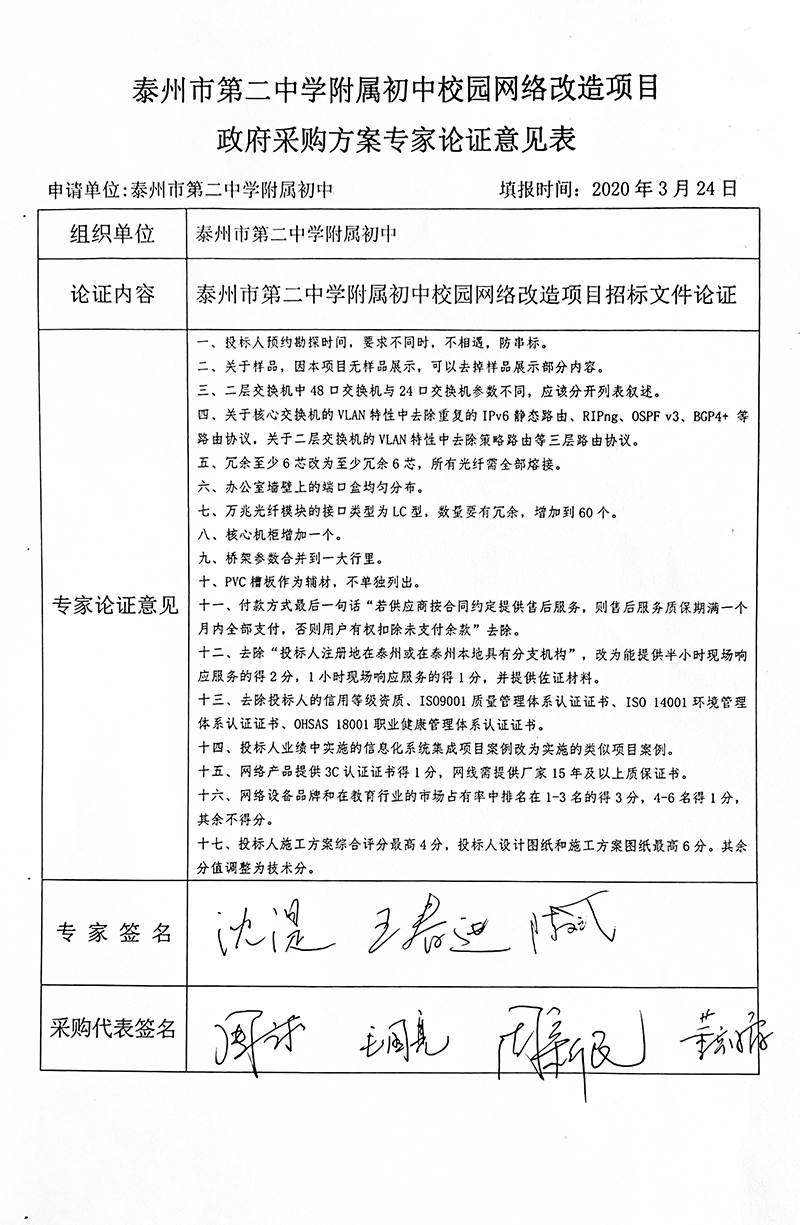 泰州市第二中学附属初中校园网络改造项目
政府采购方案专家论证意见表
申请单位:泰州市第二中学附属初中 填报时间：2020 年 3 月 24 日
组织单位 泰州市第二中学附属初中
论证内容 泰州市第二中学附属初中校园网络改造项目招标文件论证
专家论证意见
一、投标人预约勘探时间，要求不同时，不相遇，防串标。
二、关于样品，因本项目无样品展示，可以去掉样品展示部分内容。
三、二层交换机中 48 口交换机与 24 口交换机参数不同，应该分开列表叙述。
四、关于核心交换机的 VLAN 特性中去除重复的 IPv6 静态路由、RIPng、OSPF v3、BGP4+ 等
路由协议，关于二层交换机的 VLAN 特性中去除策略路由等三层路由协议。
五、冗余至少 6 芯改为至少冗余 6 芯，所有光纤需全部熔接。
六、办公室墙壁上的端口盒均匀分布。
七、万兆光纤模块的接口类型为 LC 型，数量要有冗余，增加到 60 个。
八、核心机柜增加一个。
九、桥架参数合并到一大行里。
十、PVC 槽板作为辅材，不单独列出。
十一、付款方式最后一句话“若供应商按合同约定提供售后服务，则售后服务质保期满一个
月内全部支付，否则用户有权扣除未支付余款”去除。
十二、去除“投标人注册地在泰州或在泰州本地具有分支机构”，改为能提供半小时现场响
应服务的得 2 分，1 小时现场响应服务的得 1 分，并提供佐证材料。
十三、去除投标人的信用等级资质、ISO9001 质量管理体系认证证书、ISO 14001 环境管理
体系认证证书、OHSAS 18001 职业健康管理体系认证证书。
十四、投标人业绩中实施的信息化系统集成项目案例改为实施的类似项目案例。
十五、网络产品提供 3C 认证证书得 1 分，网线需提供厂家 15 年及以上质保证书。
十六、网络设备品牌和在教育行业的市场占有率中排名在 1-3 名的得 3 分，4-6 名得 1 分，
其余不得分。
十七、投标人施工方案综合评分最高 4 分，投标人设计图纸和施工方案图纸最高 6 分。其余
分值调整为技术分。
专 家 签 名
采购代表签名